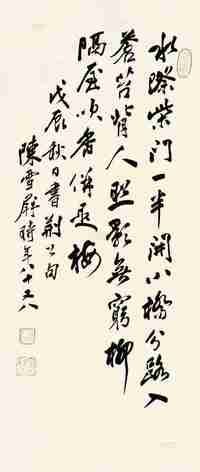 水際柴門一半開小橋分路入
蒼苔背人照影無窮柳
隔屋吹香併是梅
戊辰秋日書荊公句
陳雪屏時年八十又八